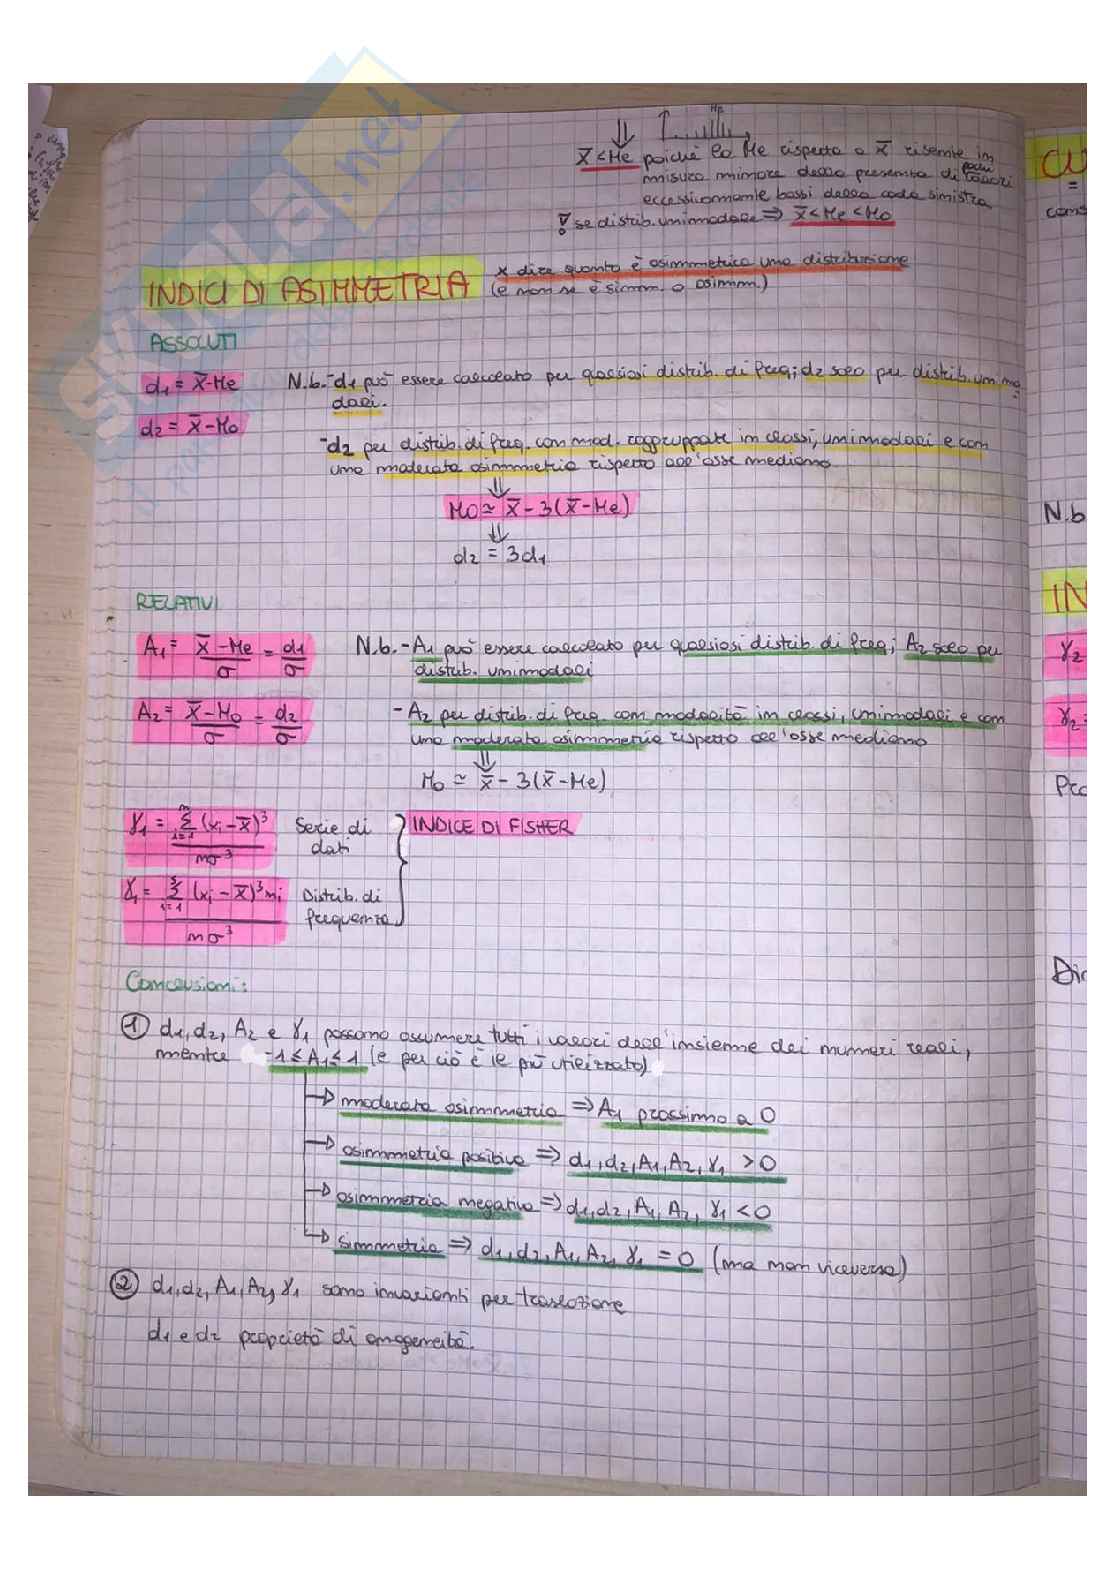 x̄ < Me poiché la Me rispetto a x̄ risente in
misura minore della presenza di pochi valori
eccessivamente bassi della coda sinistra
se distrib. unimodale ⇒ x̄ < Me < Mo
INDICI DI ASIMMETRIA x dire quanto è asimmetrica una distribuzione
(e non se è simm. o asimm.)
ASSOLUTI
d1 = x̄-Me N.b. -d1 può essere calcolato per qualsiasi distrib. di freq; d2 solo per distrib. unimo
dali.
d2 = x̄-Mo
-d2 per distrib. di freq. con mod. raggruppate in classi, unimodali e con
una moderata asimmetria rispetto all'asse mediano
⇓
Mo ≃ x̄ - 3(x̄-Me)
⇓
d2 = 3d1
RELATIVI
A1 = (x̄-Me)/σ = d1/σ N.b. - A1 può essere calcolato per qualsiasi distrib. di freq; A2 solo per
distrib. unimodali
A2 = (x̄-Mo)/σ = d2/σ - A2 per distrib. di freq. con modalità in classi, unimodali e con
una moderata asimmetria rispetto all'asse mediano
⇓
Mo ≃ x̄ - 3(x̄-Me)
γ1 = Σ i=1 n (xi - x̄)³ / nσ³ Serie di
dati
INDICE DI FISHER
γ1 = Σ i=1 s (xi - x̄)³ni / nσ³ Distrib. di
frequenza
Conclusioni:
① d1, d2, A2 e γ1 possono assumere tutti i valori dell'insieme dei numeri reali,
mentre -1 ≤ A1 ≤ 1 (e per ciò è il più utilizzato)
→ moderata asimmetria ⇒ A1 prossimo a 0
→ asimmetria positiva ⇒ d1, d2, A1, A2, γ1 > 0
→ asimmetria negativa ⇒ d1, d2, A1, A2, γ1 < 0
→ simmetria ⇒ d1, d2, A1, A2, γ1 = 0 (ma non viceversa)
② d1, d2, A1, A2, γ1 sono invarianti per traslazione
d1 e d2 proprietà di omogeneità.
CU
=
cons
N.b
IN
γ2
γ2 =
Pro